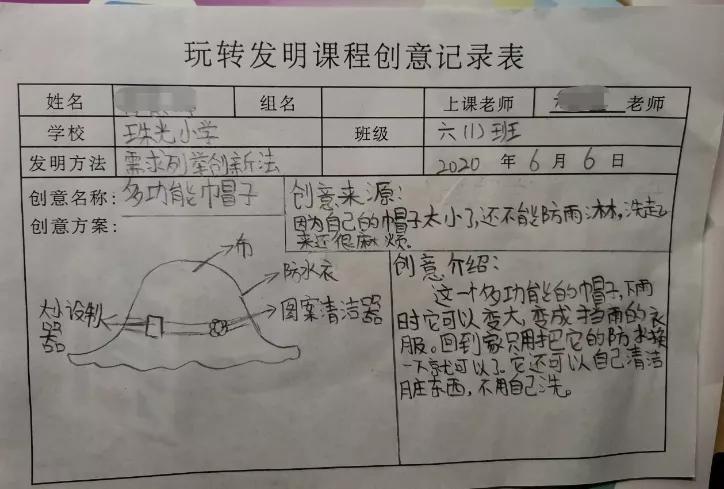 玩转发明课程创意记录表
姓名 组名 上课老师 老师
学校 珠光小学 班级 六(1)班
发明方法 需求列举创新法 2020 年 6 月 6 日
创意名称: 多功能巾帽子
创意方案:
布
防水衣
大小设制
器
器
图案清洁器
创意来源:
因为自己的巾帽子太小了,还不能防雨淋,洗起
来还很麻烦。
创意介绍:
这一个多功能的巾帽子,下雨
时它可以变大,变成挡雨的衣
服。回到家只用把它的防水换
一下就可以了。它还可以自己清洁
脏东西,不用自己洗。